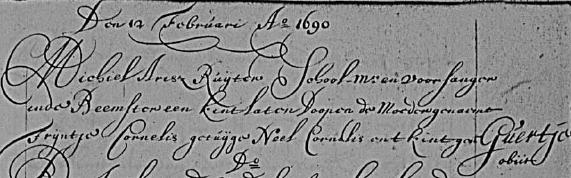 Den 12 Februari Ao 1690
Michiel Arisz Ruyter School mr en voorsanger
inde Beemster een kint laten doopen de moeder genaemt
Tryntje Cornelis getuyge Neel Cornelis ent kint gen Guertje
obiit
Do